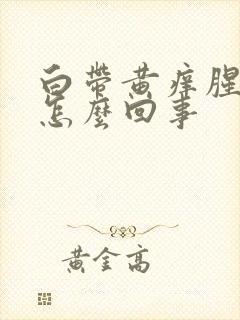 白帶黃痒腥
怎麼回事
黃金高